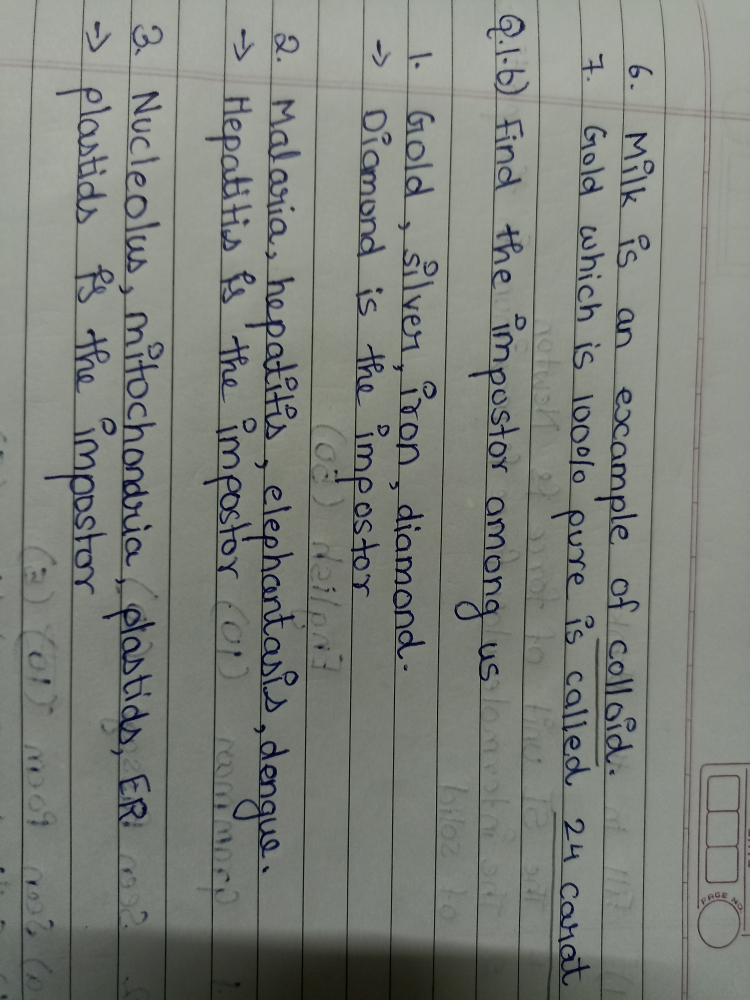 PAGE NO.
6. Milk is an example of colloid.
7. Gold which is 100% pure is called 24 carat
Q.1.b) Find the impostor among us
1. Gold, silver, iron, diamond.
→ Diamond is the impostor
2. Malaria, hepatitis, elephantasis, dengue.
→ Hepatitis is the impostor
3. Nucleolus, mitochondria, plastids, ER.
→ plastids is the impostor